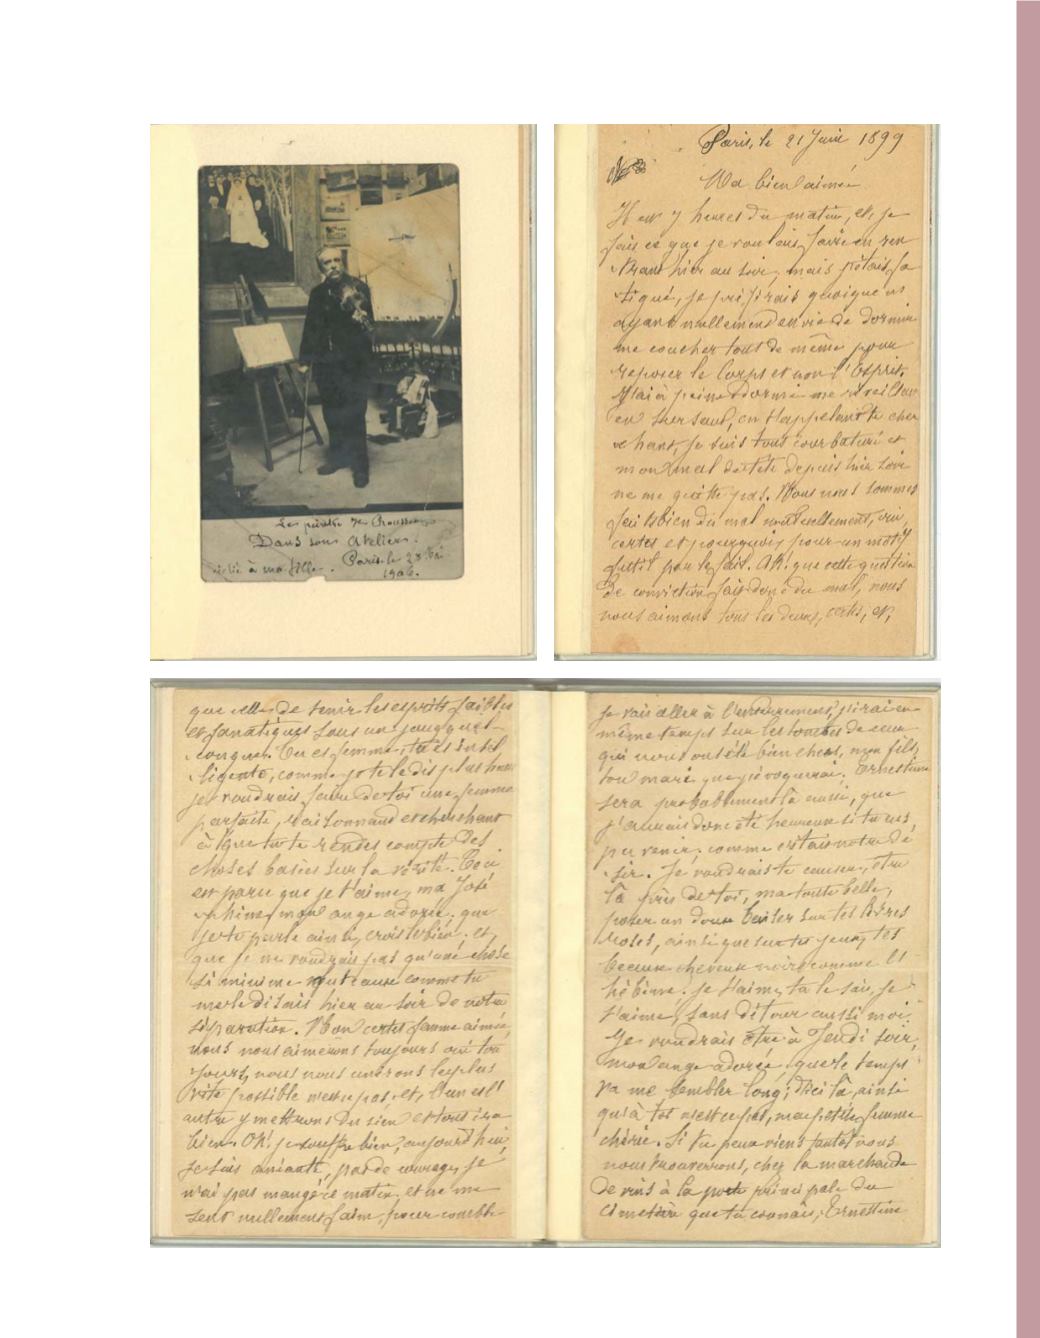 Le peintre
Dans son Atelier.
à ma fille. Paris le 23
1906.
Paris, le 21 Juin 1899
Ma bien aimée
Il est 7 heures du matin, et, je
fais ce que je voulais faire en ren
trant hier au soir, mais j'étais fa
tigué, je préférais quoique n'
ayant nullement envie de dormir
me coucher tout de même pour
reposer le Corps et non l'Esprit.
J'ai à peine dormi me réveillant
en sursaut, en t'appelant te cher
chant, je suis tout courbaturé et
mon mal de tête depuis hier soir
ne me quitte pas. Nous nous sommes
fait bien du mal mutuellement, oui,
certes et pourquoi, pour un motif
futil par le fait. Ah! que cette question
de conviction fait donc du mal, nous
nous aimons tous les deux, certes, et,
que celle de tenir les esprits faibles
et fanatiques sous un joug quel
conque. Tu es femme, tu es intel
ligente, comme je te le dis plus haut
je voudrais faire de toi une femme
parfaite, raisonnant et cherchant
à que tu te rendes compte des
choses basées sur la vérité. Ceci
est parce que je t'aime, ma José
phine, mon ange adorée, que
je te parle ainsi, crois le bien, et,
que je ne voudrais pas qu'une chose
si minime cause comme tu
me le disais hier au soir de notre
séparation. Non certes femme aimée,
nous nous aimerons toujours oui tou
jours, nous nous unirons le plus
vite possible n'est-ce pas, et, l'un et l'
autre y mettrons du sien et tout ira
bien. Oh! je souffre bien, aujourd'hui,
je suis anéanti, pas de courage, je
n'ai pas mangé ce matin, et ne me
sens nullement faim, pour comble
je vais aller à l'enterrement, j'irai en
même temps sur les tombes de ceux
qui nous ont été bien chers, mon fils,
ton mari que j'évoquerai. Ernestine
sera probablement là aussi, que
j'aurais donc été heureux si tu eus
pu venir, comme c'était notre dé
sir. Je voudrais te causer, être
là près de toi, ma toute belle,
poser un doux baiser sur tes lèvres
roses, ainsi que sur tes yeux, tes
beaux cheveux noirs comme l'
hébène. Je t'aime, tu le sais, je
t'aime, sans détour aussi moi,
Je voudrais être à Jeudi soir,
mon ange adorée, que le temps
va me sembler long, d'ici là, ainsi
qu'à toi n'est-ce pas, ma petite femme
chérie. Si tu peux viens tantôt nous
nous trouverons, chez la marchande
de vins à la porte principale du
cimetière que tu connais, Ernestine